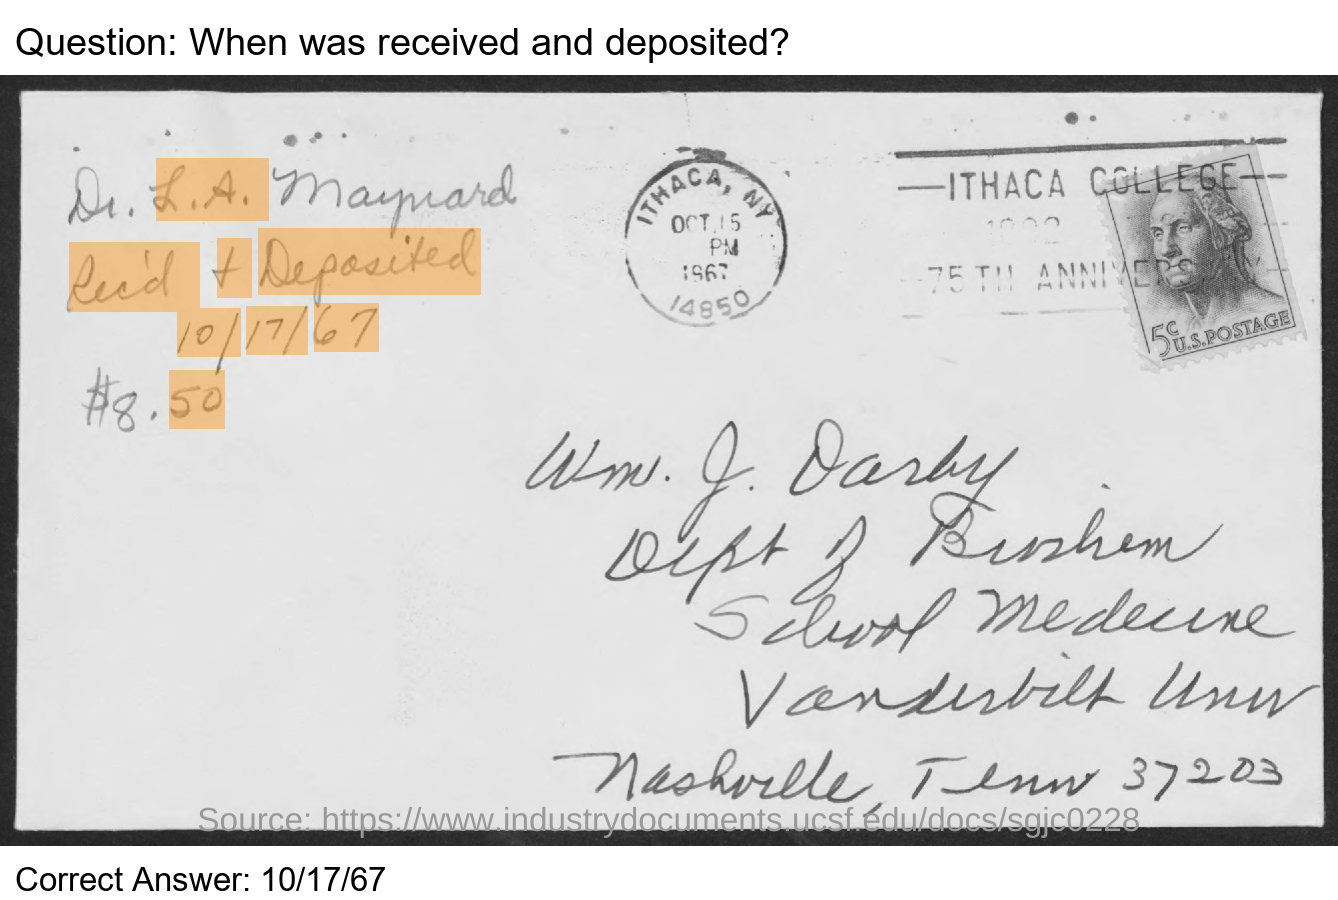 Question: When was received and deposited?
Dr. L.A. Maynard
Rec'd + Deposited
10/17/67
$8.50
ITHACA, NY
OCT 15
PM
1967
14850
ITHACA COLLEGE
1892
75TH ANNIVER
5c
U.S. POSTAGE
Wm. J. Darby
Dept of Biochem
School Medecine
Vanderbilt Univ
Nashville, Tenn 37203
Source: https://www.industrydocuments.ucsf.edu/docs/sgjc0228
Correct Answer: 10/17/67